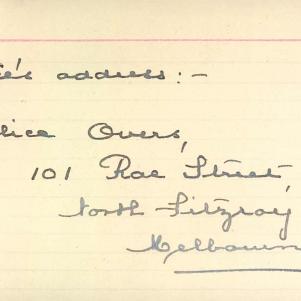 's address:-
lice Overs,
101 Rae Street,
North Fitzroy
Melbourn